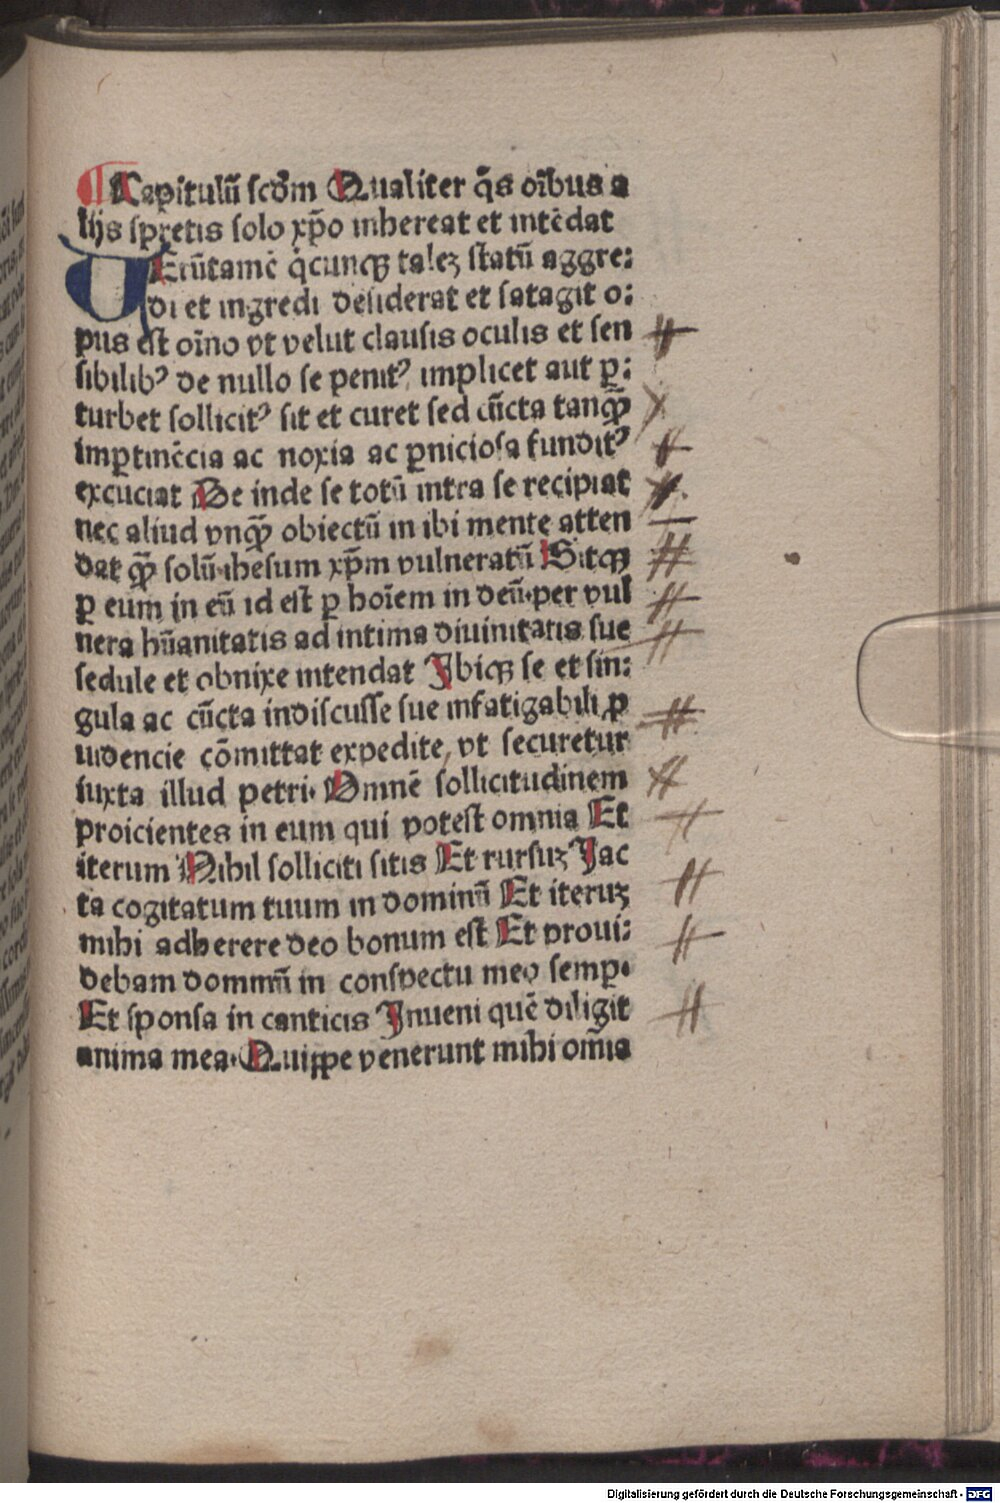 ¶ Capitulū scđm Qualiter q̄s oībus a
lijs spretis solo xp̄o inhereat et intēdat
VErūtamē q̇cunqꝫ talez statū aggre:
di et ingredi desiderat et satagit o:
pus est oīno vt velut clausis oculis et sen
sibilibꝰ de nullo se penitꝰ implicet aut ꝑ:
turbet sollicitꝰ sit et curet sed cūcta tanqȝ̄
imꝑtinēcia ac noxia ac ꝑniciosa funditꝰ
excuciat De inde se totū intra se recipiat
nec aliud vnqȝ̄ obiectū in ibi mente atten
dat qȝ̄ solū·ihesum xp̄m vulneratū Sitqꝫ
ꝑ eum in eū id est ꝑ hoīem in deū·per vul
nera hūanitatis ad intima diuinitatis sue
sedule et obnixe intendat Ibiqꝫ se et sin:
gula ac cūcta indiscusse sue infatigabili ꝓ
uidencie cōmittat expedite, vt securetur
iuxta illud petri· Omnē sollicitudinem
proicientes in eum qui potest omnia Et
iterum Nihil solliciti sitis Et rursuz Jac
ta cogitatum tuum in dominū Et iteruz
mihi adherere deo bonum est Et proui:
debam dominū in conspectu meo semꝑ·
Et sponsa in canticis Inueni quē diligit
anima mea· Quippe venerunt mihi om̄ia
Digitalisierung gefördert durch die Deutsche Forschungsgemeinschaft - DFG